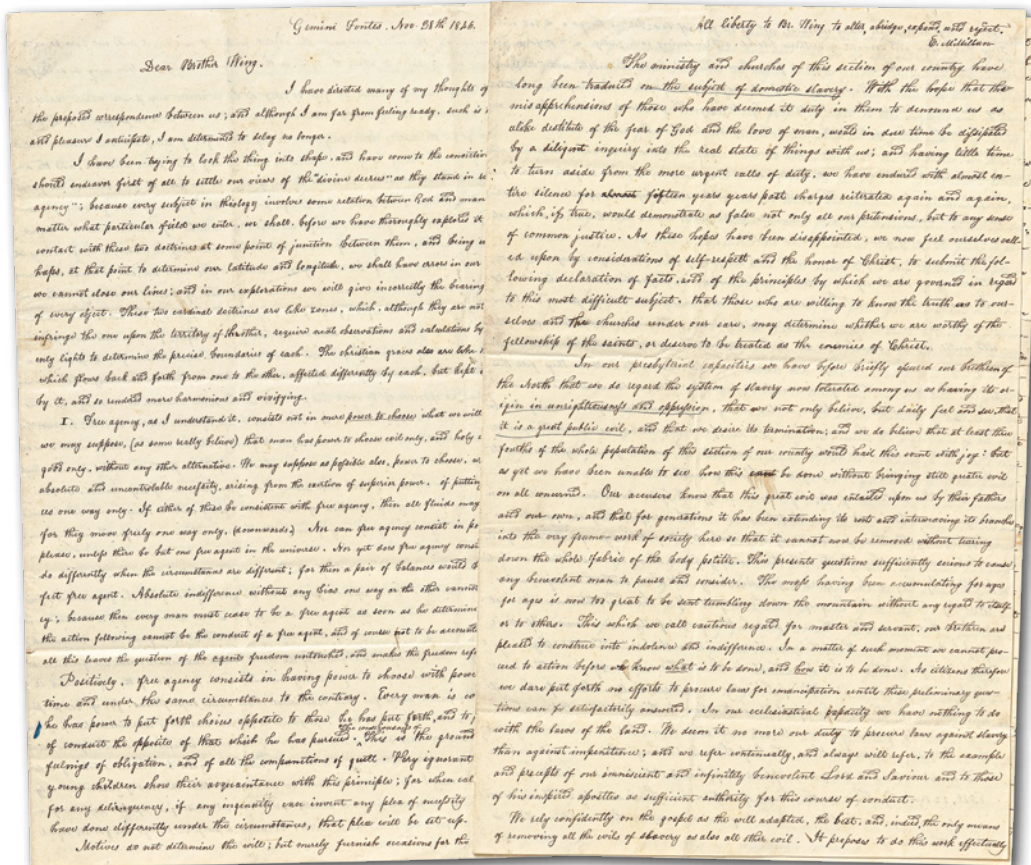 Gemini Fontes. Nov. 28th 1846.
Dear Brother Wing.
I have directed many of my thoughts
the proposed correspondence between us; and although I am far from feeling ready, such is
and pleasure I anticipate, I am determined to delay no longer.
I have been trying to lick this thing into shape, and have come to the conviction
should endeavor first of all to settle our views of the "divine decrees" as they stand in
agency"; because every subject in theology involves some relation between God and man
matter what particular field we enter, we shall, before we have thoroughly explored it
contact with these two doctrines at some point of junction between them, and being
haps, at that point to determine our latitude and longitude, we shall have errors in our
we cannot close our lines; and in our explorations we will give incorrectly the bearing
of every object. These two cardinal doctrines are like zones, which, although they are not
infringe the one upon the territory of the other, require neat observations and calculations by
only lights to determine the precise boundaries of each. The christian graces also are like
which flows back and forth from one to the other, affected differently by each, but kept
by it, and so rendered more harmonious and vivifying.
I. Free agency, as I understand it, consists not in mere power to choose what we will
we may suppose, (as some really believe) that man has power to choose evil only, and holy
good only, without any other alternative. We may suppose as possible also, power to choose,
absolute and uncontrolable necessity, arising from the exertion of superior power, of putting
us one way only. If either of these be consistent with free agency, then all fluids may
for they move freely one way only, (downwards.) Nor can free agency consist in
please, unless there be but one free agent in the universe. Nor yet does free agency
do differently when the circumstances are different; for then a pair of balances would
fect free agent. Absolute indifference without any bias one way or the other cannot
cy; because then every man must cease to be a free agent as soon as he determine
the action following cannot be the conduct of a free agent, and of course not to be
all this leaves the question of the agents freedom untouched, and makes the freedom
Positively. Free agency consists in having power to choose with pow
time and under the same circumstances to the contrary. Every man is
he has power to put forth choices opposite to those he has put forth, and to
of conduct the opposite of that which he has pursued. This consciousness is the ground
feelings of obligation, and of all the compunctions of guilt. Very ignorant
young children show their acquaintance with this principle; for when cal
for any delinquency, if any ingenuity can invent any plea of necessity
have done differently under the circumstances, that plea will be set up.
Motives do not determine the will; but merely furnish occasions for the
All liberty to Br. Wing to alter, abridge, expand, and reject.
The ministry and churches of this section of our country have
long been traduced on the subject of domestic slavery. With the hope that the
misapprehensions of those who have deemed it duty in them to denounce us as
alike destitute of the fear of God and the love of man, would in due time be dissipated
by a diligent inquiry into the real state of things with us; and having little time
to turn aside from the more urgent calls of duty, we have endured with almost en-
tire silence for almost fifteen years years past charges reiterated again and again,
which, if true, would demonstrate as false not only all our pretensions, but to any sense
of common justice. As these hopes have been disappointed, we now feel ourselves call-
ed upon by considerations of self-respect and the honor of Christ, to submit the fol-
lowing declaration of facts, and of the principles by which we are governed in regard
to this most difficult subject, that those who are willing to know the truth as to our-
selves and the churches under our care, may determine whether we are worthy of the
fellowship of the saints, or deserve to be treated as the enemies of Christ.
In our presbyterial capacities we have before briefly assured our brethren of
the North that we do regard the system of slavery now tolerated among us as having its or-
igin in unrighteousness and oppression, that we not only believe, but daily feel and see, that
it is a great public evil, and that we desire its termination; and we do believe that at least three
fourths of the whole population of this section of our country would hail this event with joy: but
as yet we have been unable to see how this can be done without bringing still greater evil
on all concerned. Our accusers know that this great evil was entailed upon us by their fathers
and our own, and that for generations it has been extending its roots and interweaving its branches
into the very frame-work of society here so that it cannot now be removed without tearing
down the whole fabric of the body politic. This presents questions sufficiently serious to cause
any benevolent man to pause and consider. The mass having been accumulating for ages
for ages is now too great to be sent tumbling down the mountain without any regard to itself
or to others. This which we call cautious regard for master and servant, our brethren are
pleased to construe into indolence and indifference. In a matter of such moment we cannot pro-
ceed to action before we know what is to be done, and how it is to be done. As citizens therefore
we dare put forth no efforts to procure laws for emancipation until these preliminary ques-
tions can be satisfactorily answered. In our ecclesiastical capacity we have nothing to do
with the laws of the land. We deem it no more our duty to procure laws against slavery
than against impenitence; and we refer continually, and always will refer, to the example
and precepts of our omniscient and infinitely benevolent Lord and Saviour and to those
of his inspired apostles as sufficient authority for this course of conduct.
We rely confidently on the gospel as the well adapted, the best, and, indeed, the only means
of removing all the evils of slavery as also all other evil. It proposes to do this work effectually